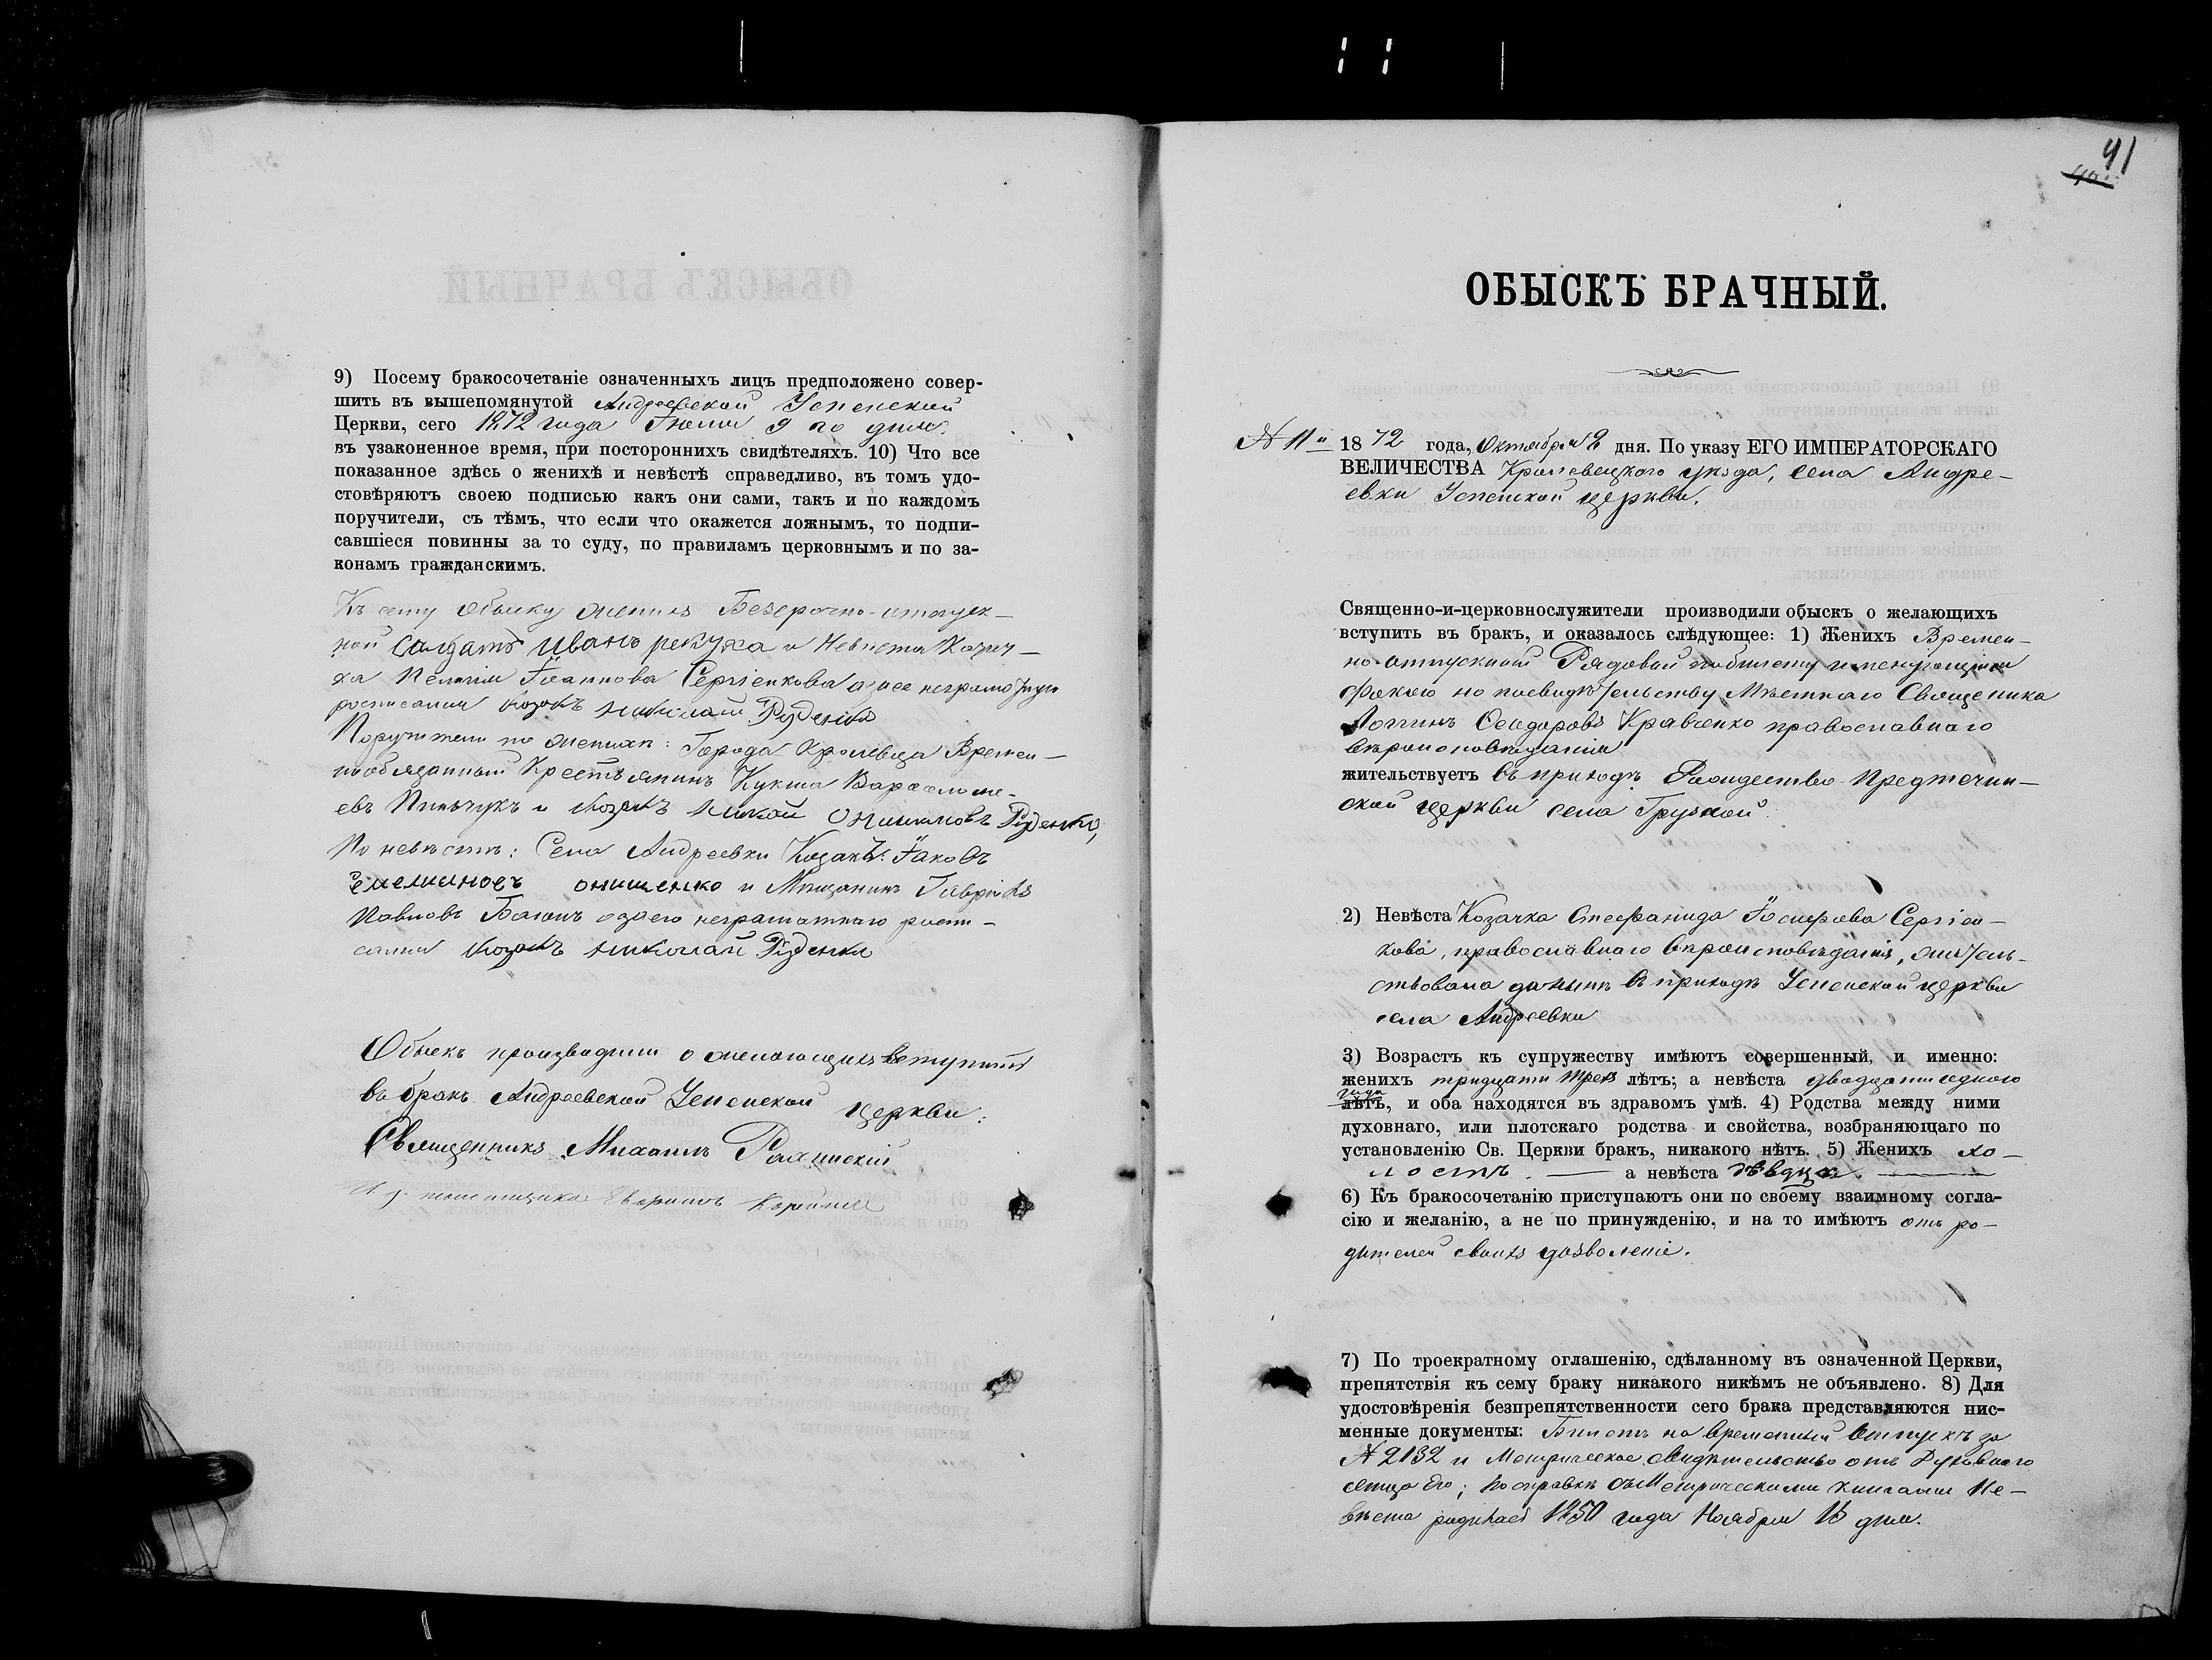 9) Посему бракосочетаніе означенныхъ лицъ предположено совер-
шить въ вышепомянутой Андреевской Успенской
Церкви, сего 1872 года Іюля 9 го дня.
въ узаконенное время, при постороннихъ свидѣтеляхъ. 10) Что все
показанное здѣсь о женихѣ и невѣстѣ справедливо, въ томъ удо-
стовѣряютъ своею подписью какъ они сами, такъ и по каждомъ
поручители, съ тѣмъ, что если что окажется ложнымъ, то подпи-
савшіеся повинны за то суду, по правиламъ церковнымъ и по за-
конамъ гражданскимъ.
Къ сему обыску женихъ Безсрочно-отпуск-
ной салдатъ Иванъ рекуха и Невѣста Козач-
ха Пелагія Іоаннова Сергіенкова а за нее неграмотную
росписался козакъ николай Руденко
Поручители по женихѣ: Города Кролевца Времен-
нообязанный Крестьянинъ Кукша Варфоломе-
евъ Пинчукъ и козакъ николай Руденко,
По невѣстѣ: Села Андреевки Козакъ: Іаковъ
Емелиановъ онищенко и Мѣщанинъ Гавріилъ
Павловъ а за его неграматнаго роспи-
сался козакъ николай Руденко
Обыскъ производили о желающихъ вступить
въ бракъ Андреевской Успенской Церкви:
Священникъ Михаилъ
41
ОБЫСКЪ БРАЧНЫЙ.
№ 11й 1872 года, Октября 9 дня. По указу ЕГО ИМПЕРАТОРСКАГО
ВЕЛИЧЕСТВА Кролевецкого уѣзда, села Андре-
евки Успенской церкви.
Священно-и-церковнослужители производили обыскъ о желающихъ
вступить въ бракъ, и оказалось слѣдующее: 1) Женихъ Времен-
но-отпускной Рядовой по билету именующійся
Фокою но по свидѣтельству Мѣстнаго Священика
Логинъ Ѳеодоровъ Кравченко православнаго
вѣроисповѣданія
жительствуетъ въ приходѣ Рождество-Предтечин-
ской церкви села Грузкой.
2) Невѣста Козачка Стефанида Іосифова Сергіен-
кова, православнаго вѣроисповѣданія, жытель-
ствовала донынѣ въ приходѣ Успенской церкви
села Андреевки
3) Возрастъ къ супружеству имѣютъ совершенный, и именно:
женихъ тридцати трехъ лѣтъ; а невѣста двадцати одного
года
лѣтъ, и оба находятся въ здравомъ умѣ. 4) Родства между ними
духовнаго, или плотскаго родства и свойства, возбраняющаго по
установленію Св. Церкви бракъ, никакого нѣтъ. 5) Женихъ хо-
лостъ. — а невѣста дѣвица. —
6) Къ бракосочетанію приступаютъ они по своему взаимному согла-
сію и желанію, а не по принужденію, и на то имѣютъ отъ ро-
дителей своихъ дозволеніе.
7) По троекратному оглашенію, сдѣланному въ означенной Церкви,
препятствія къ сему браку никакого никѣмъ не объявлено. 8) Для
удостовѣренія безпрепятственности сего брака представляются пис-
менные документы: Билетъ на временный отпускъ за
№ 2132 и Метрическое свидѣтельство отъ Духовнаго
отца его; по справкѣ съ Метрическими книгами Не-
вѣста родилась 1850 года Ноября дня.